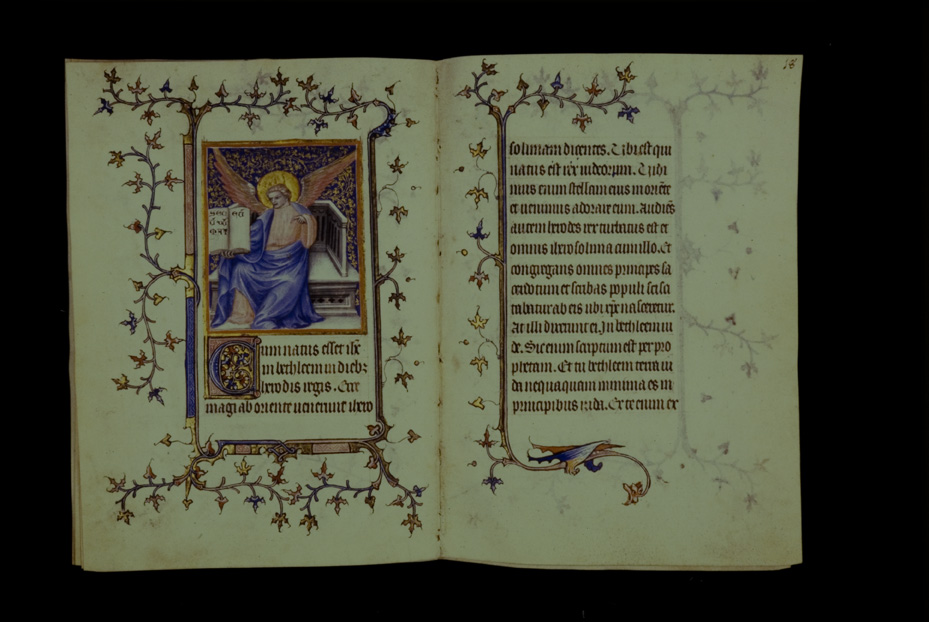 Cum natus esset ihc
in bethleem in diebz
herodis regis. Ecce
magi ab oriente uenerunt ihero
18
solimam dicentes. Ubi est qui
natus est rex iudeorum. Uidi
mus enim stellam eius in oriēte
et uenimus adorare eum. Audiēs
autem herodes rex turbatus est et
omnis iherosolima cum illo. Et
congregans omnes principes sa
cerdotum et scribas populi scisci
tabatur ab eis ubi xp̄c nasceretur.
At illi dixerunt ei. In bethleem iu
de. Sic enim scriptum est per pro
phetam. Et tu bethleem terra iu
da nequaquam minima es in
principibus iuda. Ex te enim ex